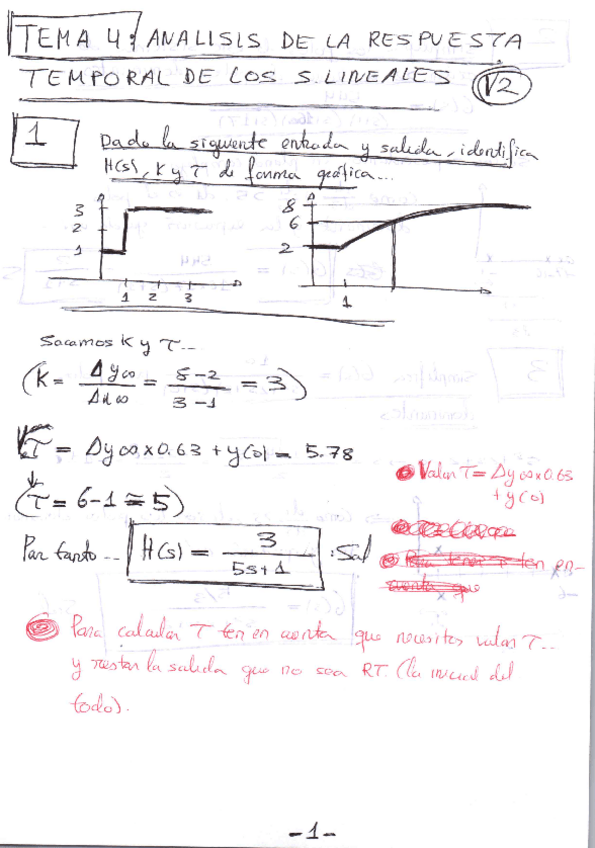 TEMA 4: ANALISIS DE LA RESPUESTA
TEMPORAL DE LOS S. LINEALES V2
1
Dado la siguiente entrada y salida, identifica
H(s), K y τ de forma gráfica...
3
2
1
1 2 3
8
6
2
1
Sacamos K y τ...
(K = Δy∞ / Δu∞ = 8-2 / 3-1 = 3)
τ = Δy∞ x 0.63 + y(0) = 5.78
(τ = 6-1 ≅ 5)
Por tanto... H(s) = 3 / 5s+1 : Sal
Valor τ = Δy∞ x 0.63
+ y(0)
Para calcular τ ten en cuenta que necesitas valor τ...
y restar la salida que no sea RT. (la inicial del
todo).
-1-